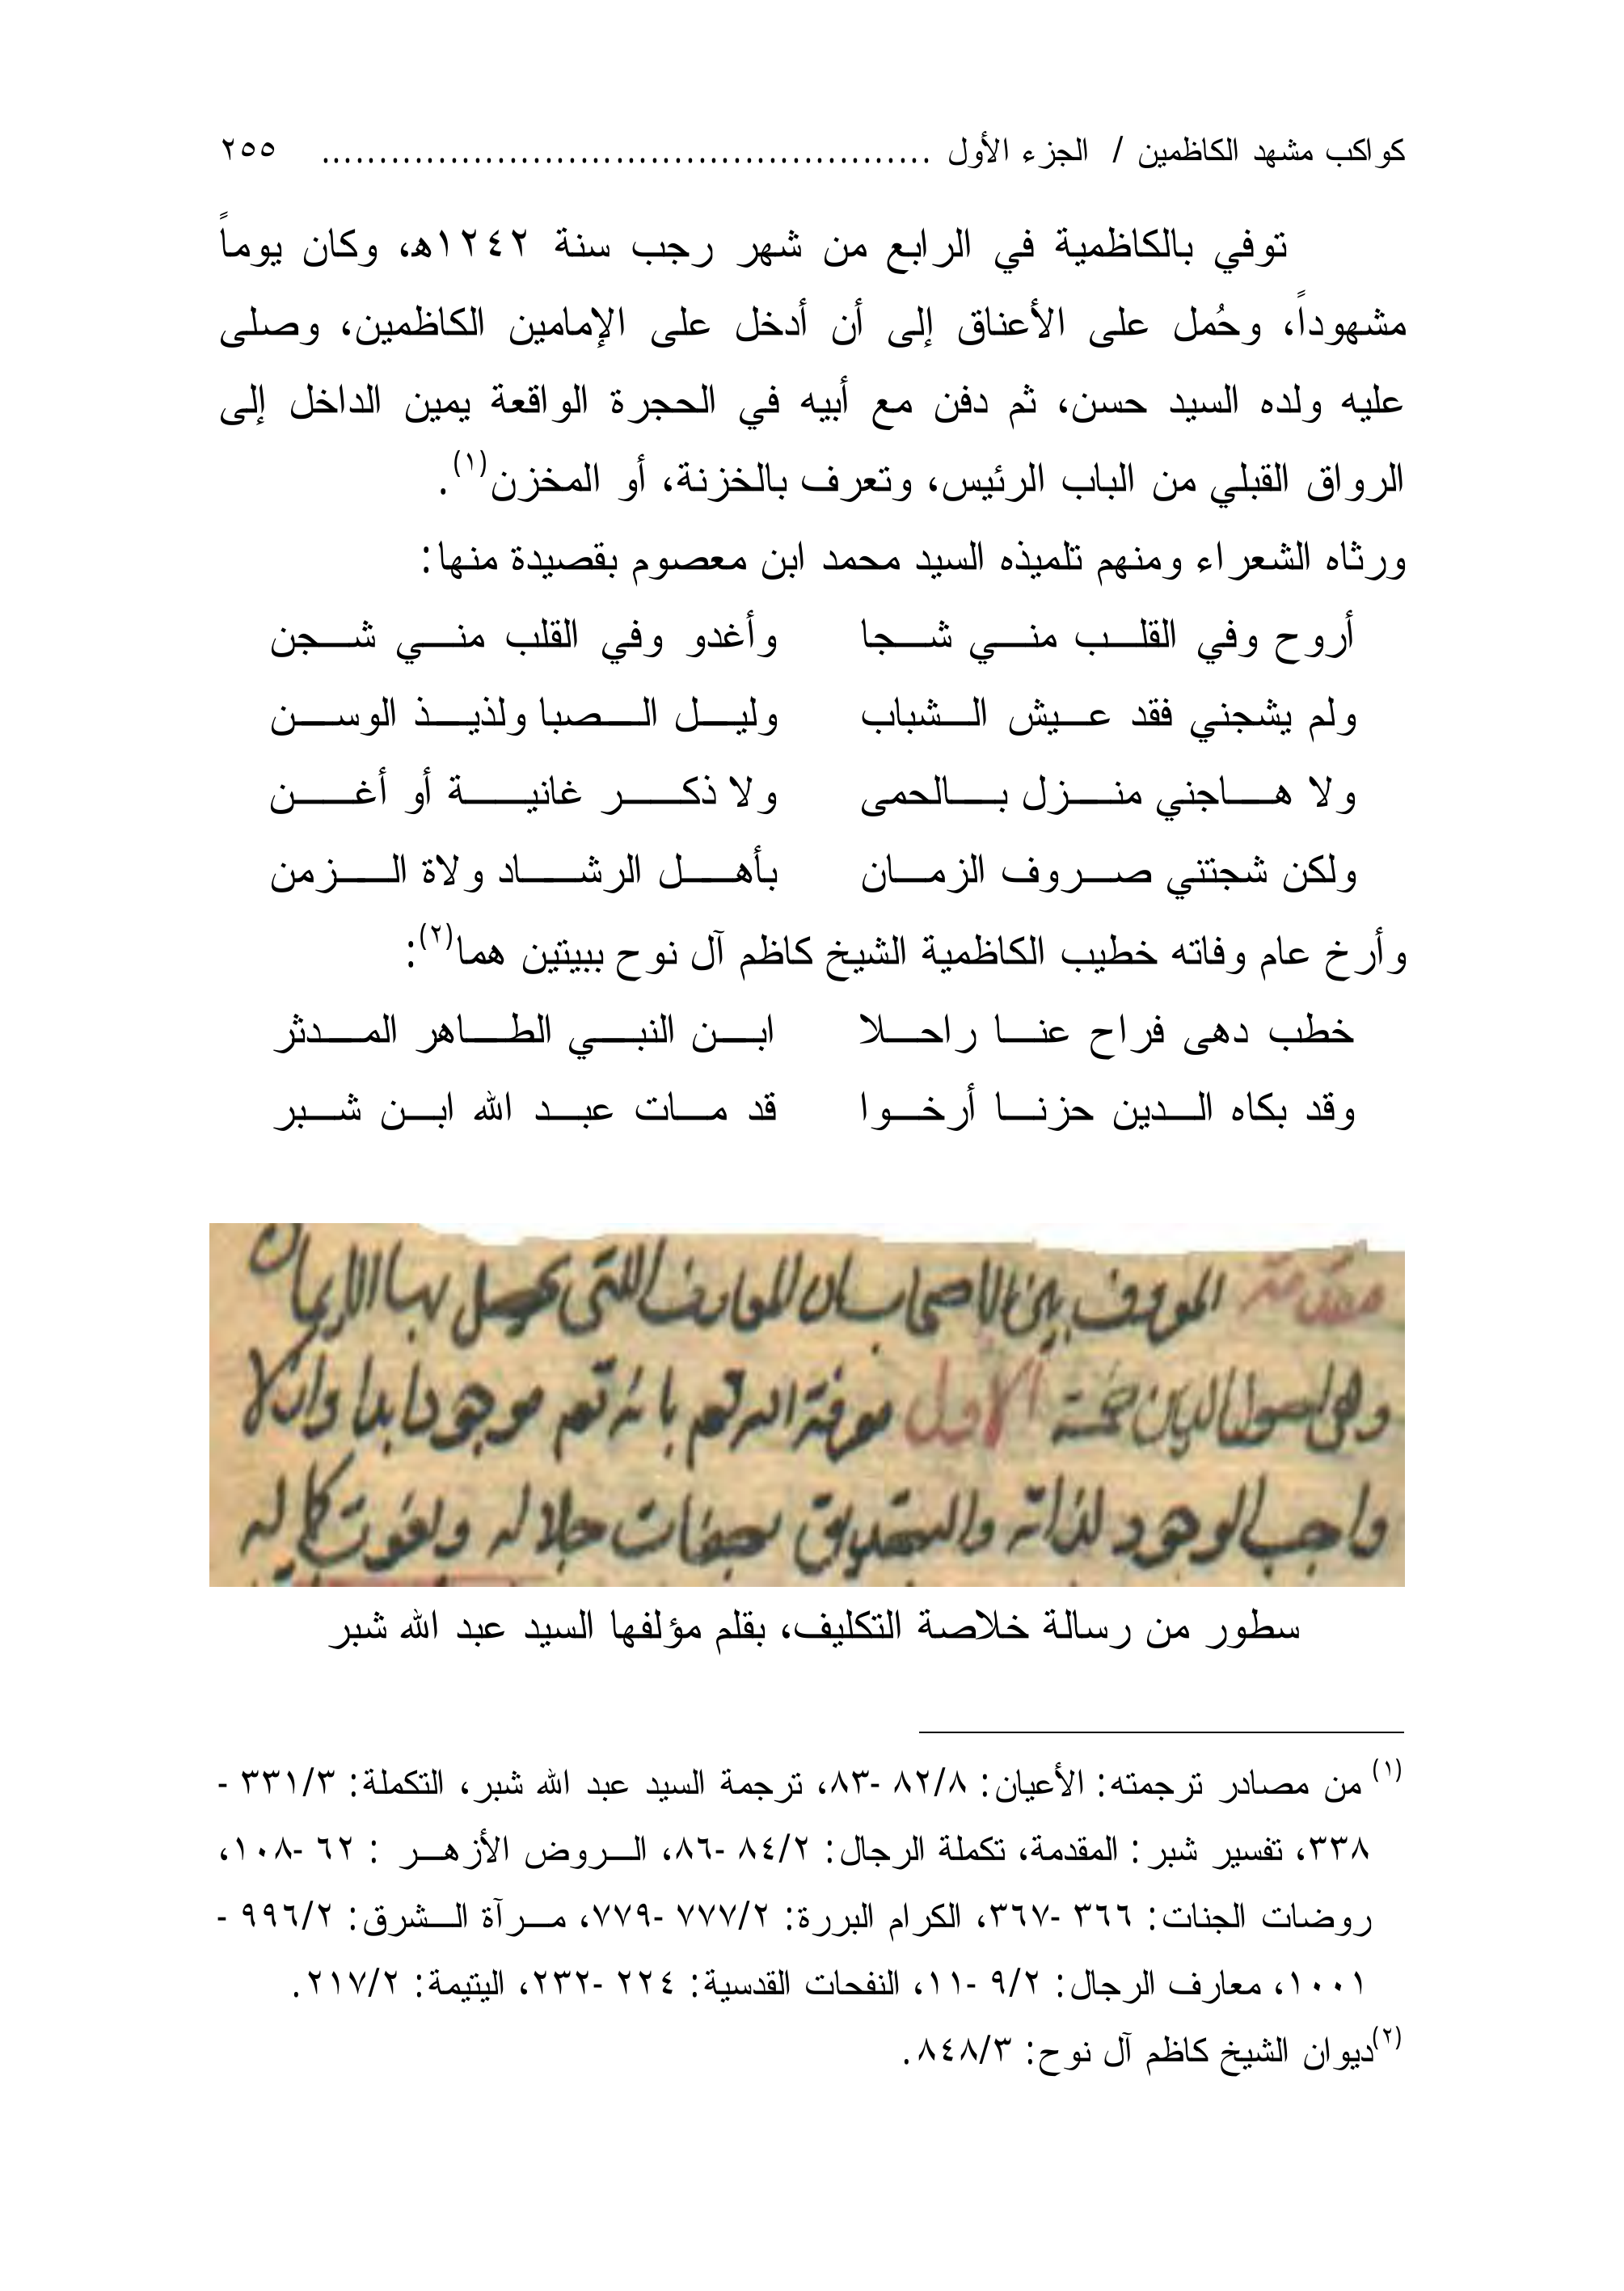 كواكب مشهد الكاظمين / الجزء الأول .................................................... ٢٥٥
توفي بالكاظمية في الرابع من شهر رجب سنة ١٢٤٢هـ، وكان يوماً
مشهوداً، وحُمل على الأعناق إلى أن أدخل على الإمامين الكاظمين، وصلى
عليه ولده السيد حسن، ثم دفن مع أبيه في الحجرة الواقعة يمين الداخل إلى
الرواق القبلي من الباب الرئيس، وتعرف بالخزنة، أو المخزن(١).
ورثاه الشعراء ومنهم تلميذه السيد محمد ابن معصوم بقصيدة منها:
أروح وفي القلب مني شجا وأغدو وفي القلب مني شجن
ولم يشجني فقد عيش الشباب وليل الصبا ولذيذ الوسن
ولا هاجني منزل بالحمى ولا ذكر غانية أو أغن
ولكن شجتني صروف الزمان بأهل الرشاد ولاة الزمن
وأرخ عام وفاته خطيب الكاظمية الشيخ كاظم آل نوح ببيتين هما(٢):
خطب دهى فراح عنا راحلا ابن النبي الطاهر المدثر
وقد بكاه الدين حزنا أرخوا قد مات عبد الله ابن شبر
مقدمة المعروف بين الاصحاب ان المعارف اللتي يحصل بها الايمان
وهي اصول الدين خمسة الاول معرفة الله تعم بانه تعم موجود ابدا وازلا
واجب الوجود لذاته والتصديق بصفات جلاله ونعوت كماله
سطور من رسالة خلاصة التكليف، بقلم مؤلفها السيد عبد الله شبر
(١) من مصادر ترجمته: الأعيان: ٨٢/٨ -٨٣، ترجمة السيد عبد الله شبر، التكملة: ٣٣١/٣ -
٣٣٨، تفسير شبر: المقدمة، تكملة الرجال: ٨٤/٢ -٨٦، الروض الأزهر : ٦٢ -١٠٨،
روضات الجنات: ٣٦٦ -٣٦٧، الكرام البررة: ٧٧٧/٢ -٧٧٩، مرآة الشرق: ٩٩٦/٢ -
١٠٠١، معارف الرجال: ٩/٢ -١١، النفحات القدسية: ٢٢٤ -٢٣٢، اليتيمة: ٢١٧/٢.
(٢)ديوان الشيخ كاظم آل نوح: ٨٤٨/٣.